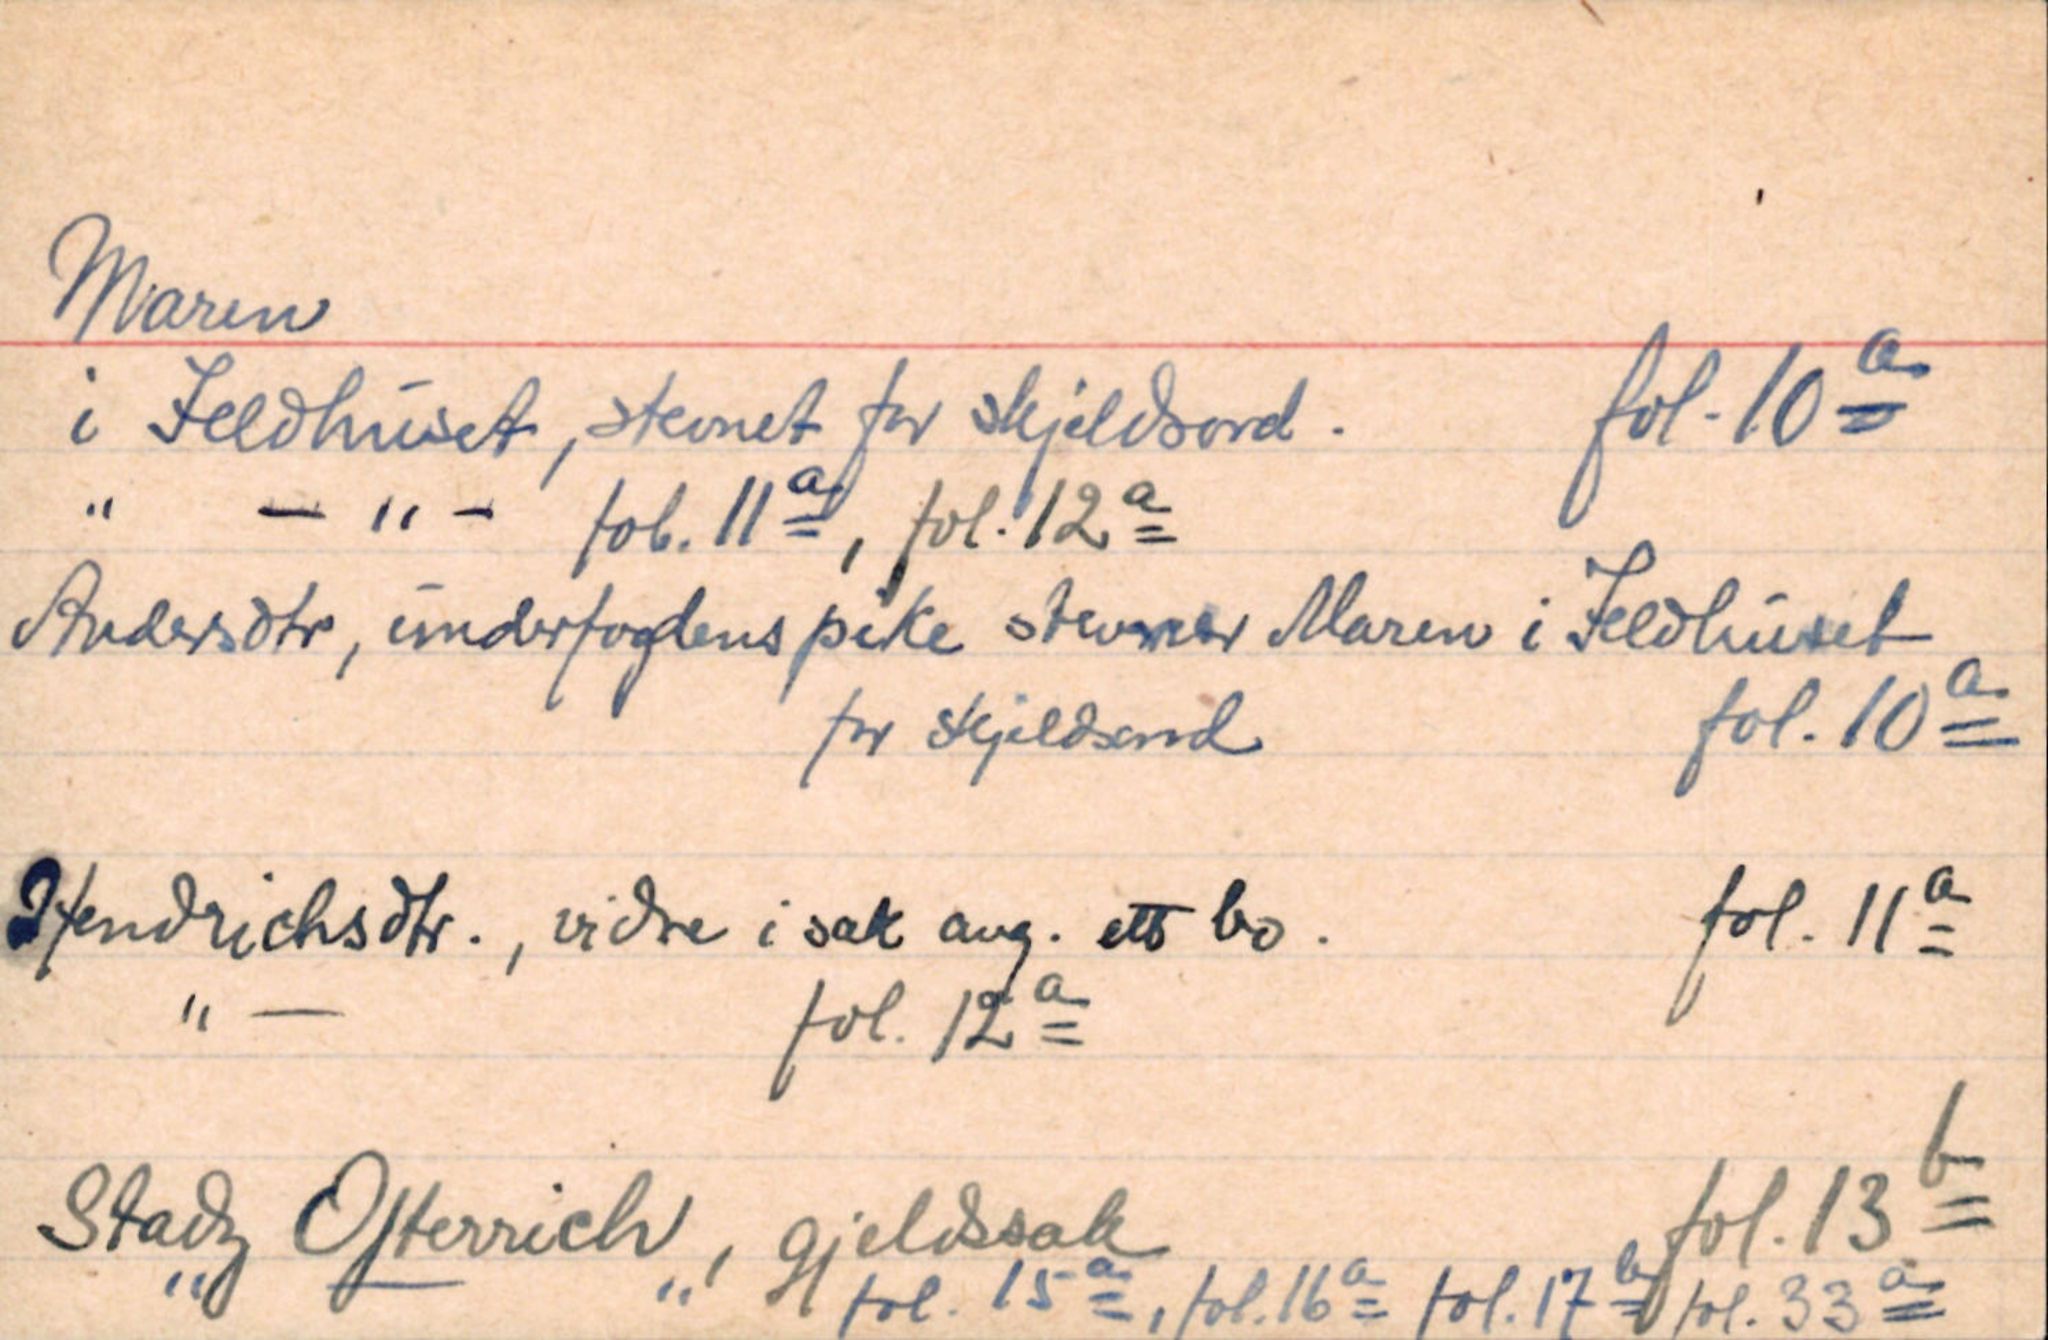 Maren
i Feldhuset, stevnet for skjeldsord. fol. 10 a
" — " — fol. 11 a, fol. 12 a
Andersdtr, underfogdens pike stevner Maren i Feldhuset
for skjeldsord fol. 10 a
Hendrichsdtr., vidne i sak ang. ett bo. fol. 11 a
" — fol. 12 a
Stadz Osterrich, gjeldssak fol. 13 b
" — " fol. 15 a, fol. 16 a fol. 17 b fol. 33 a